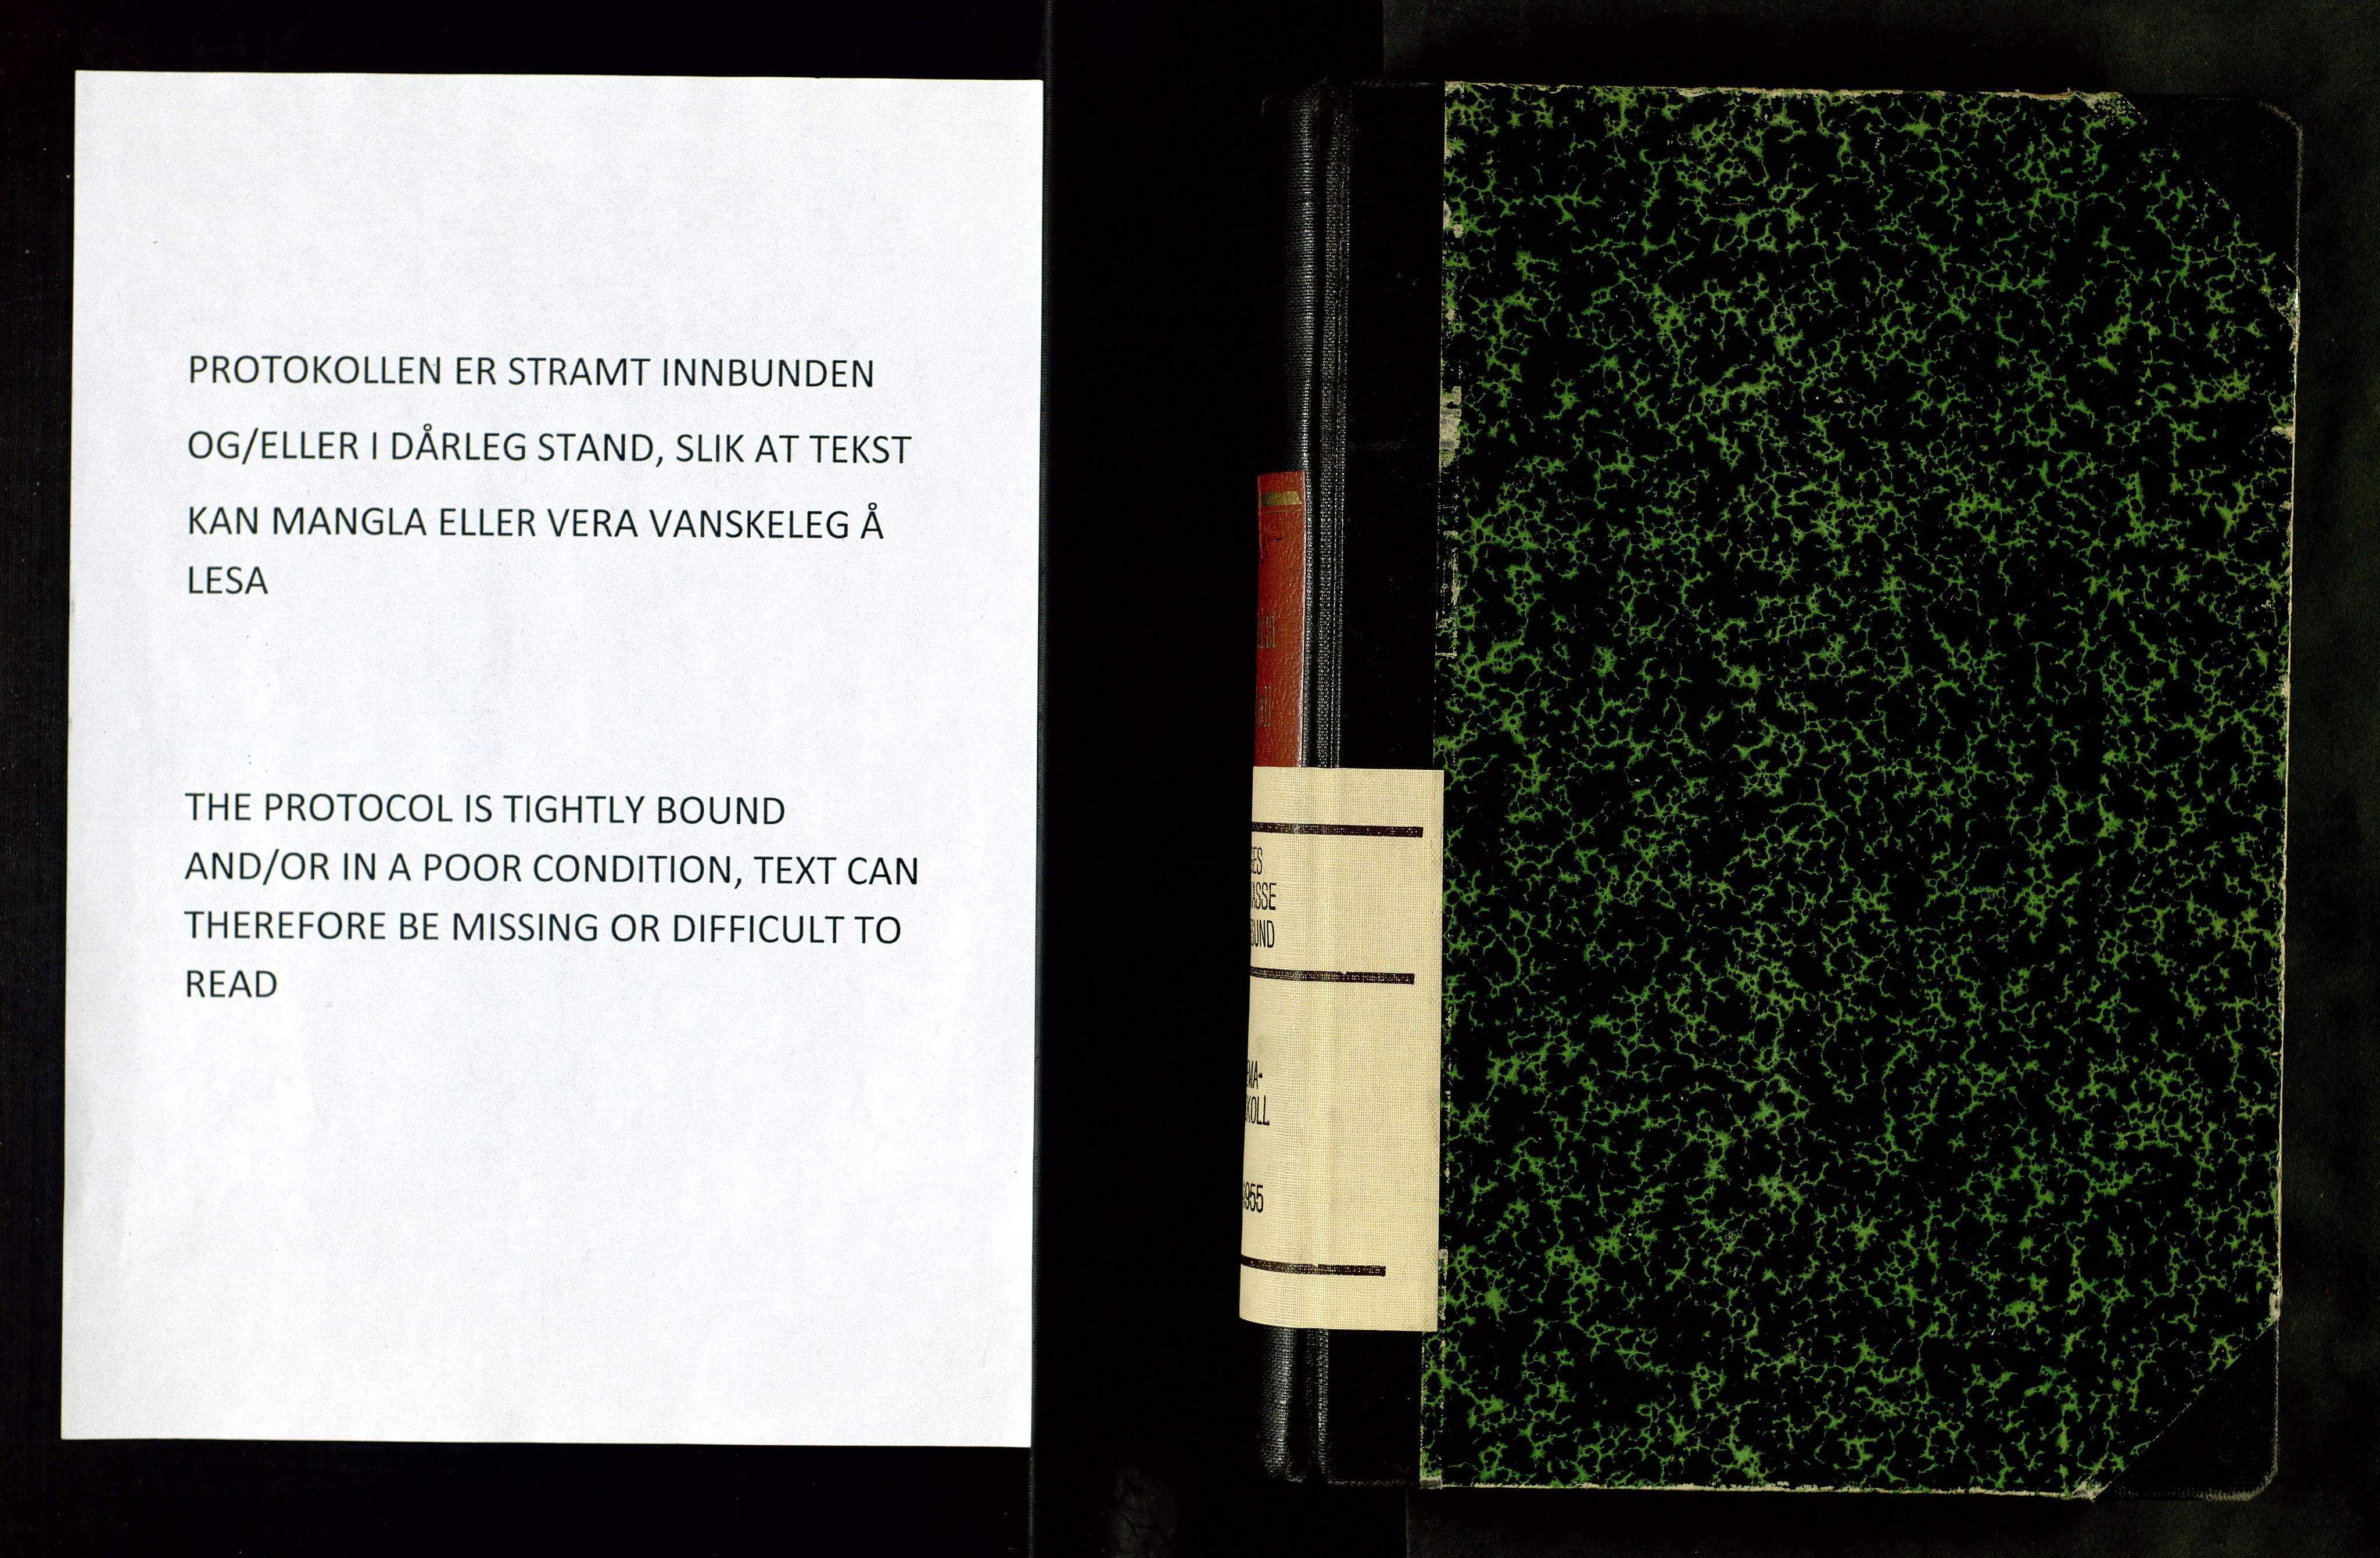 PROTOKOLLEN ER STRAMT INNBUNDEN
OG/ELLER I DÅRLEG STAND, SLIK AT TEKST
KAN MANGLA ELLER VERA VANSKELEG Å
LESA
THE PROTOCOL IS TIGHTLY BOUND
AND/OR IN A POOR CONDITION, TEXT CAN
THEREFORE BE MISSING OR DIFFICULT TO
READ
ASSE
BUND
EMA-
KOLL
1955